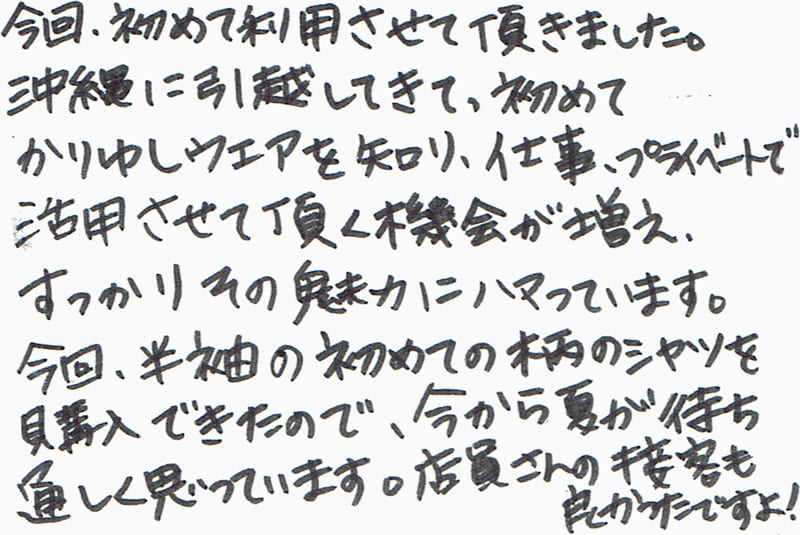 今回、初めて利用させて頂きました。
沖縄に引越してきて、初めて
かりゆしウエアを知り、仕事、プライベートで
活用させて頂く機会が増え、
すっかりその魅力にハマっています。
今回、半袖の初めての柄のシャツを
購入できたので、今から夏が待ち
通しく思っています。店員さんの接客も
良かったですよ!